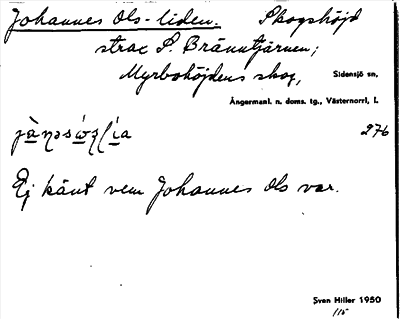 Johannes Ols-liden. Skogshöjd
strax S. Bränntjärnen;
Myrbohöjdens skog, Sidensjö sn,
Ångermanl. n. doms. tg., Västernorrl. l.
276
Ej känt vem Johannes Ols var.
Sven Hiller 1950